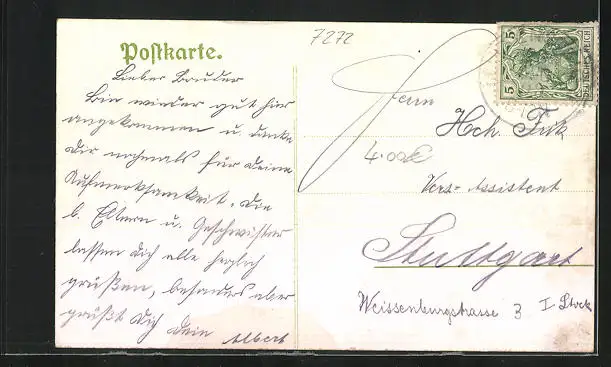 7272
Postkarte.
Lieber Bruder
Bin wieder gut hier
angekommen u. danke
Dir nochmals für Deine
Aufmerksamkeit. Die
l. Eltern u. Geschwister
lassen Dich alle herzlich
grüßen, besonders aber
grüßt Dich Dein Albert
5
5
DEUTSCHES REICH
Herrn
Hch. Frik
4.00€
Vers-Assistent
Stuttgart
Weissenburgstrasse 3 I. Stock